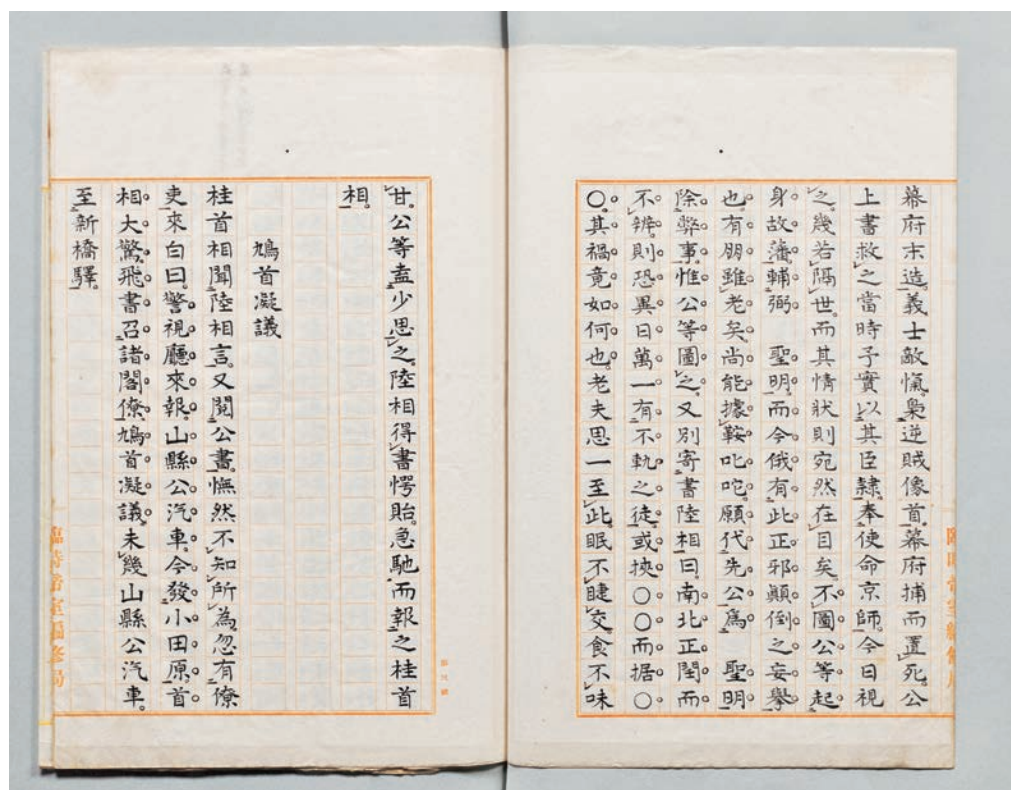 幕府末造。義士敵愾。梟逆賊像首。幕府捕而置死。公
上書救之。當時予實以其臣隸。奉使命京師。今日視
之。幾若隔世。而其情狀則宛然在目矣。不圖公等起
身故藩。輔弼　聖明。而今俄有此正邪顚倒之妄擧
也。有朋雖老矣。尚能據鞍叱咤。願代先公爲　聖明
除弊事。惟公等圖之。又別寄書陸相曰。南北正閏而
不辨。則恐異日萬一有不軌之徒。或挾〇〇而据〇
〇。其禍竟如何也。老夫思一至此。眠不睫交。食不味
甘。公等盍少思之。陸相得書愕眙。急馳而報之桂首
相。
鳩首凝議
桂首相聞陸相言。又閲公書。憮然不知所為。忽有僚
吏來白曰。警視廳來報。山縣公汽車。今發小田原。首
相大驚。飛書召諸閣僚。鳩首凝議。未幾山縣公汽車。
至新橋驛。
臨時帝室編修局